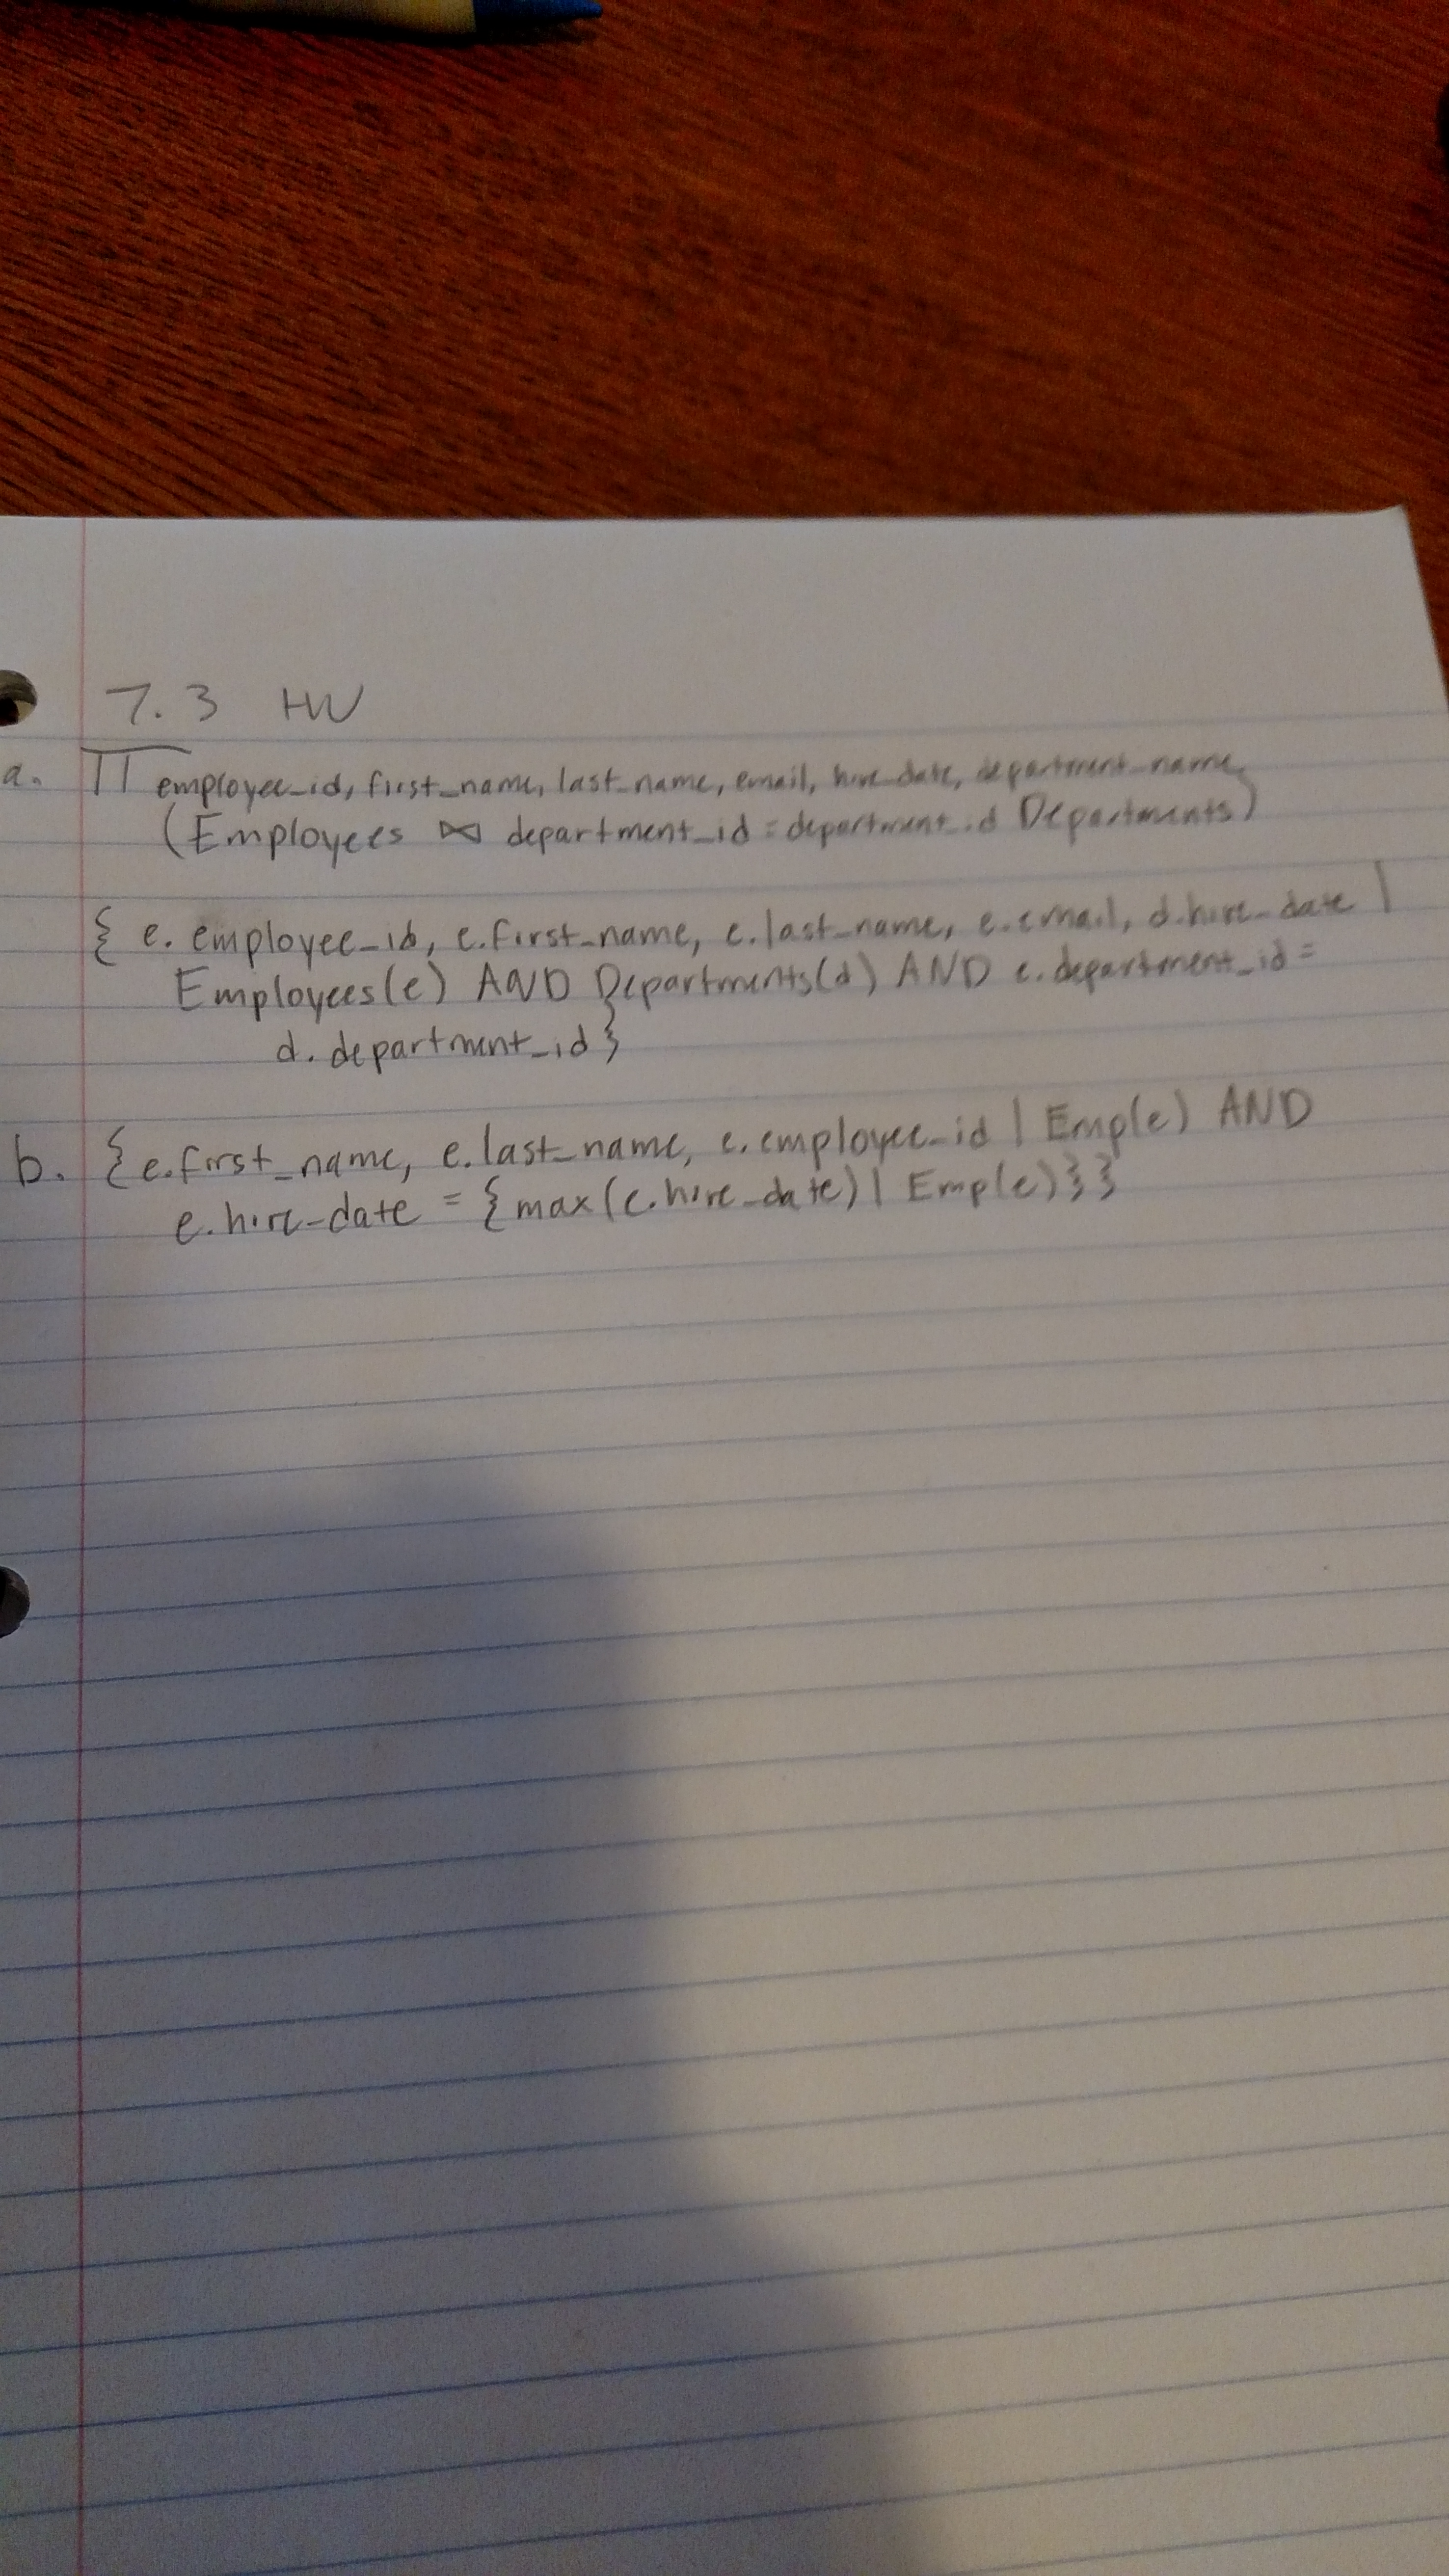 7.3 HW
a. Π employee_id, first_name, last_name, email, hire_date, department_name
(Employees ⋈ department_id = department_id Departments)
{ e. employee_id, e.first_name, e.last_name, e.email, d.hire_date |
Employees(e) AND Departments(d) AND e.department_id =
d. department_id}
b. {e.first_name, e.last_name, e.employee_id | Emp(e) AND
e.hire_date = {max(e.hire_date) | Emp(e)}}